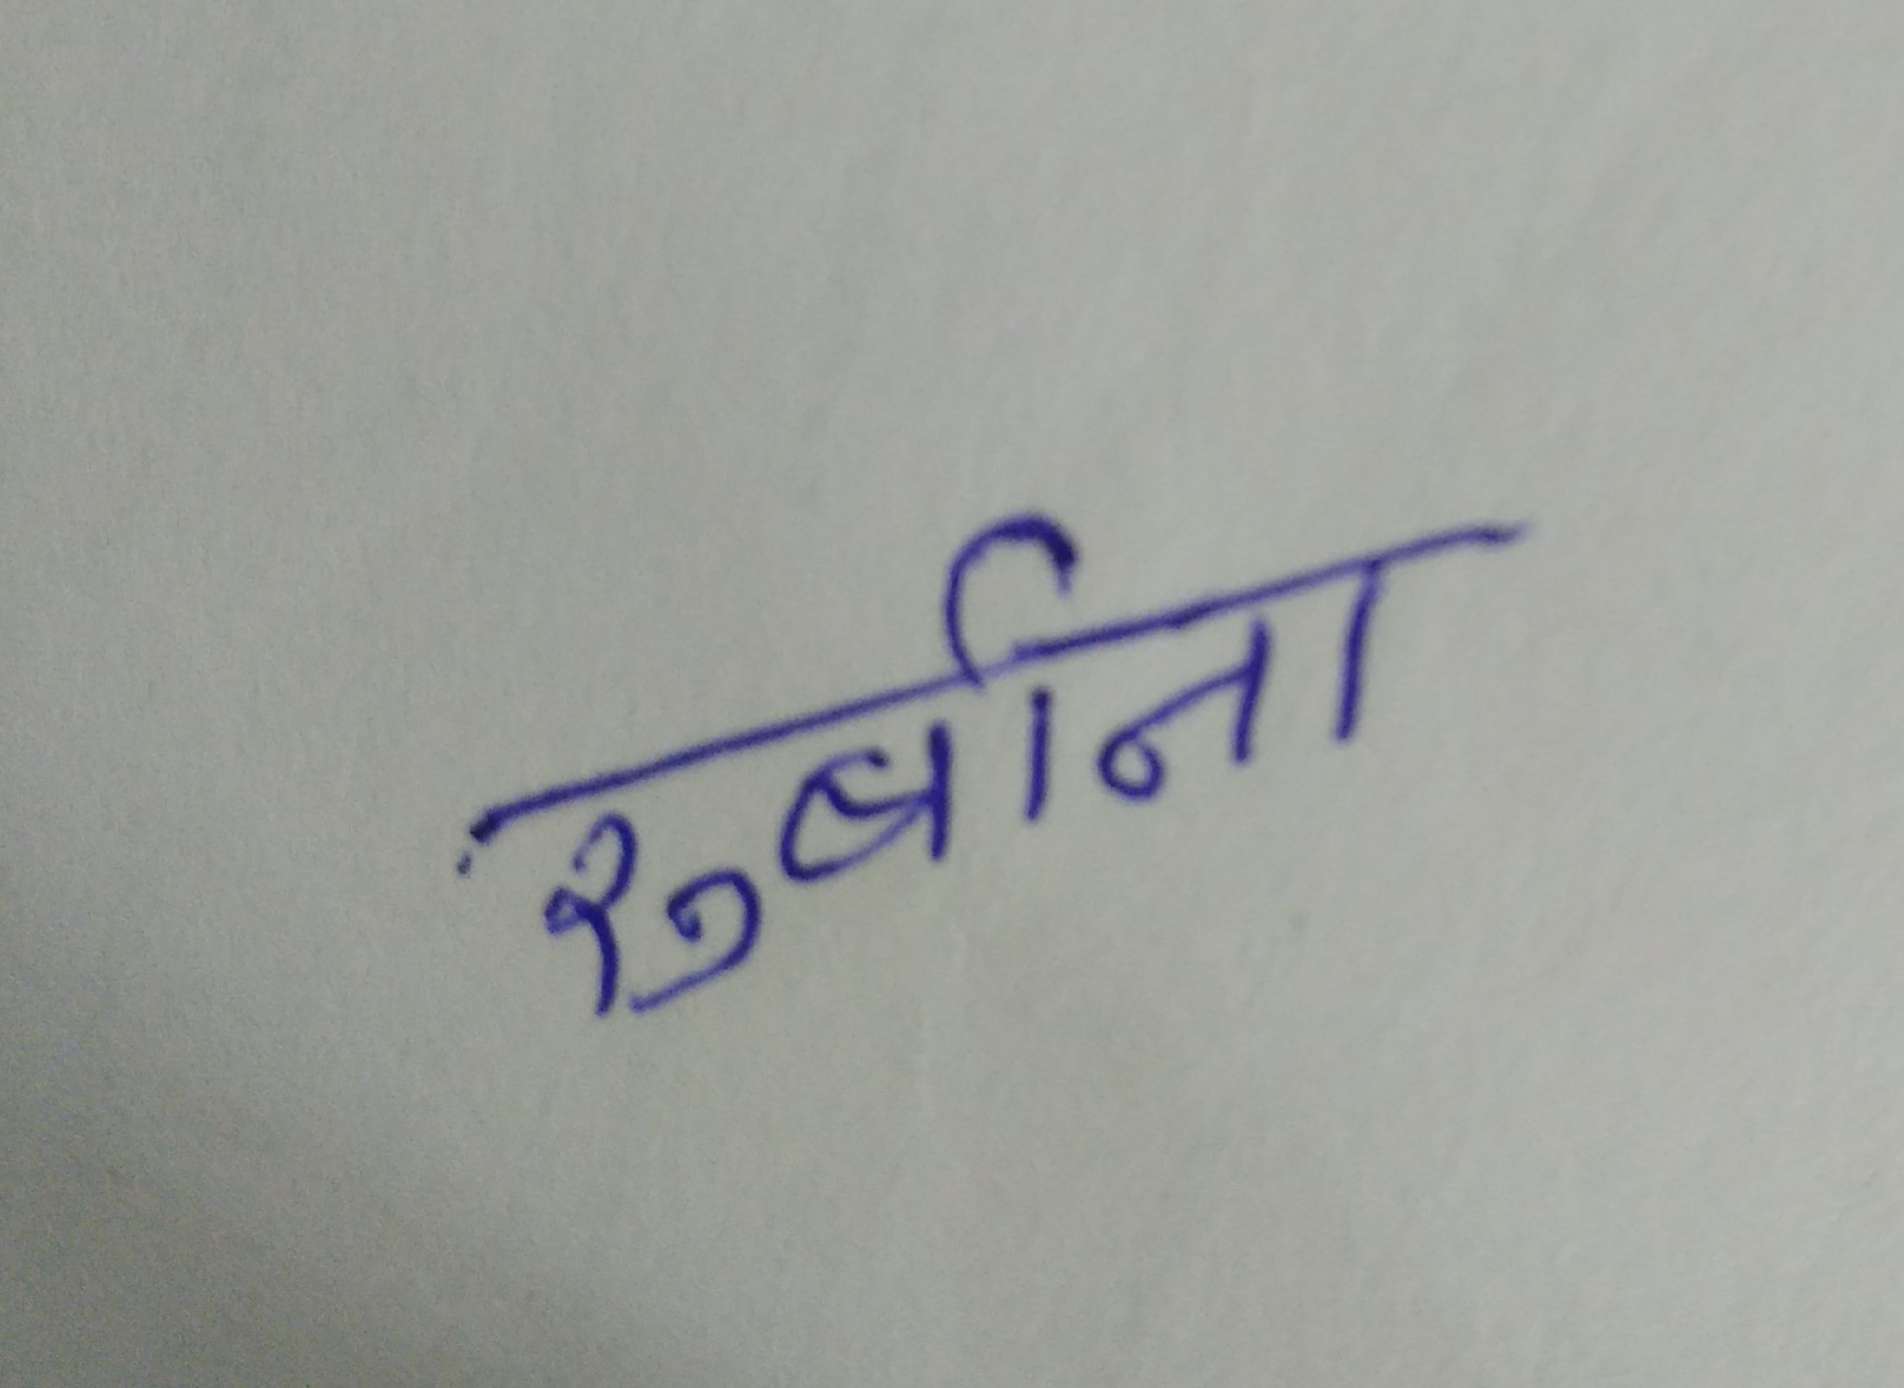 रुबीना